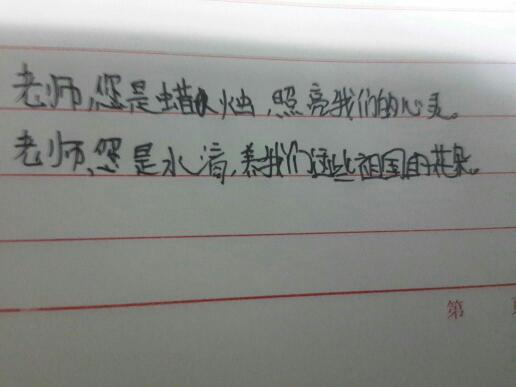 老师,您是蜡烛,照亮我们的心灵。
老师,您是水滴,养我们这些祖国的花朵。
第